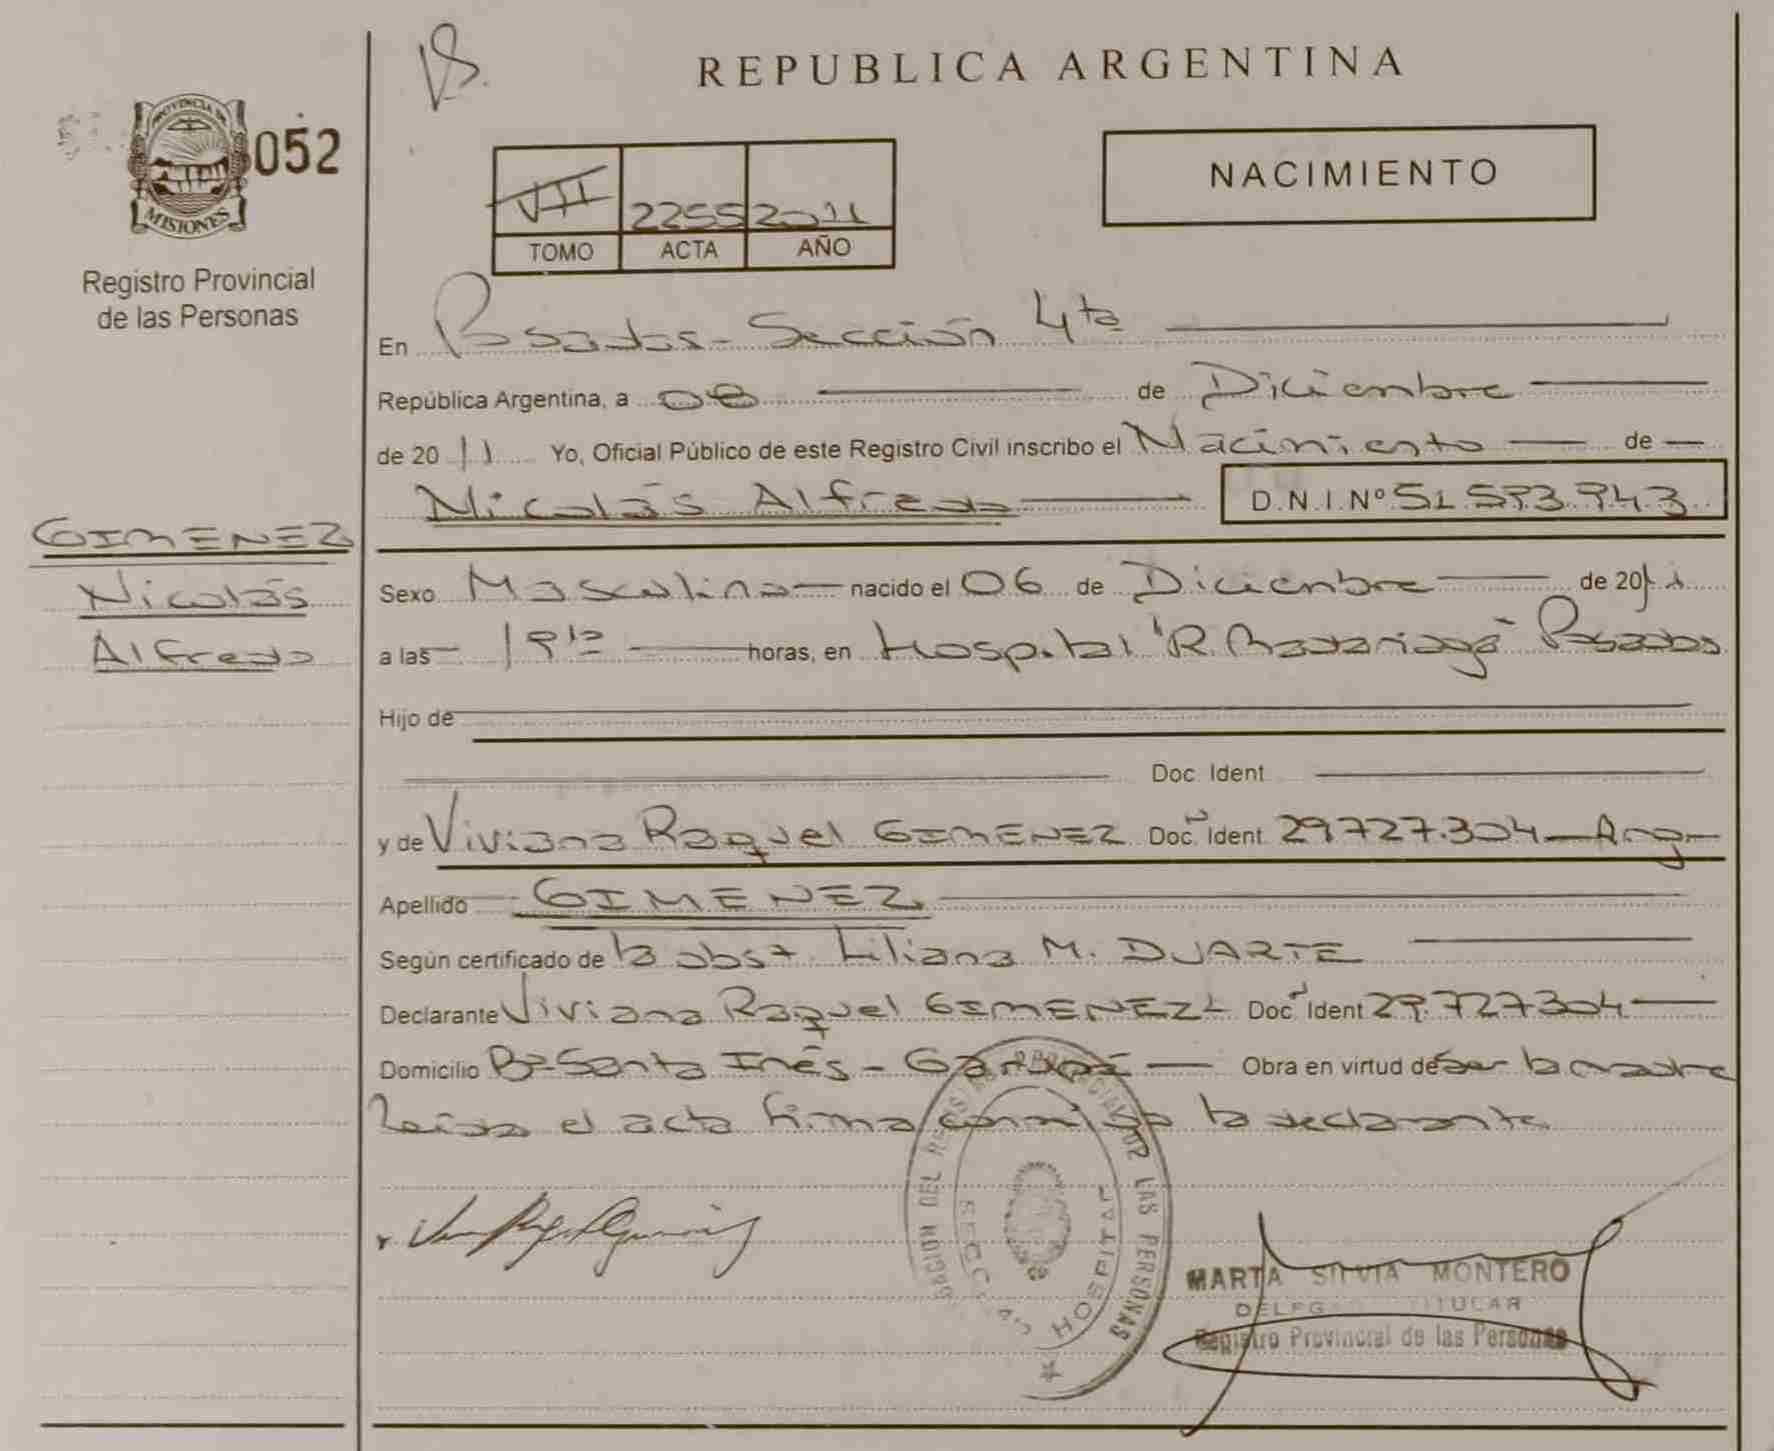 REPUBLICA ARGENTINA
PROVINCIA DE
MISIONES
052
Registro Provincial
de las Personas
VII 2255 2011
TOMO ACTA AÑO
NACIMIENTO
En Posadas - Sección 4ta
República Argentina, a 08 de Diciembre
de 2011 Yo, Oficial Público de este Registro Civil inscribo el Nacimiento de
Nicolás Alfredo D.N.I.Nº 51.593.943
GIMENEZ
Nicolás
Alfredo
Sexo Masculino nacido el 06 de Diciembre de 2011
a las horas, en Hospital "R. Madariaga" Posadas
Hijo de
Doc. Ident
y de Viviana Raquel GIMENEZ Doc. Ident. 29.727.304 Arg.
Apellido GIMENEZ
Según certificado de la obst. Liliana M. DUARTE
Declarante Viviana Raquel GIMENEZ Doc. Ident 29.727.304
Domicilio Bº Santa Inés - Garupá Obra en virtud de ser la madre
Leída el acta firma conmigo la declarante
LAS PERSONAS
HOSPITAL
MARTA SILVIA MONTERO
TITULAR
Registro Provincial de las Personas